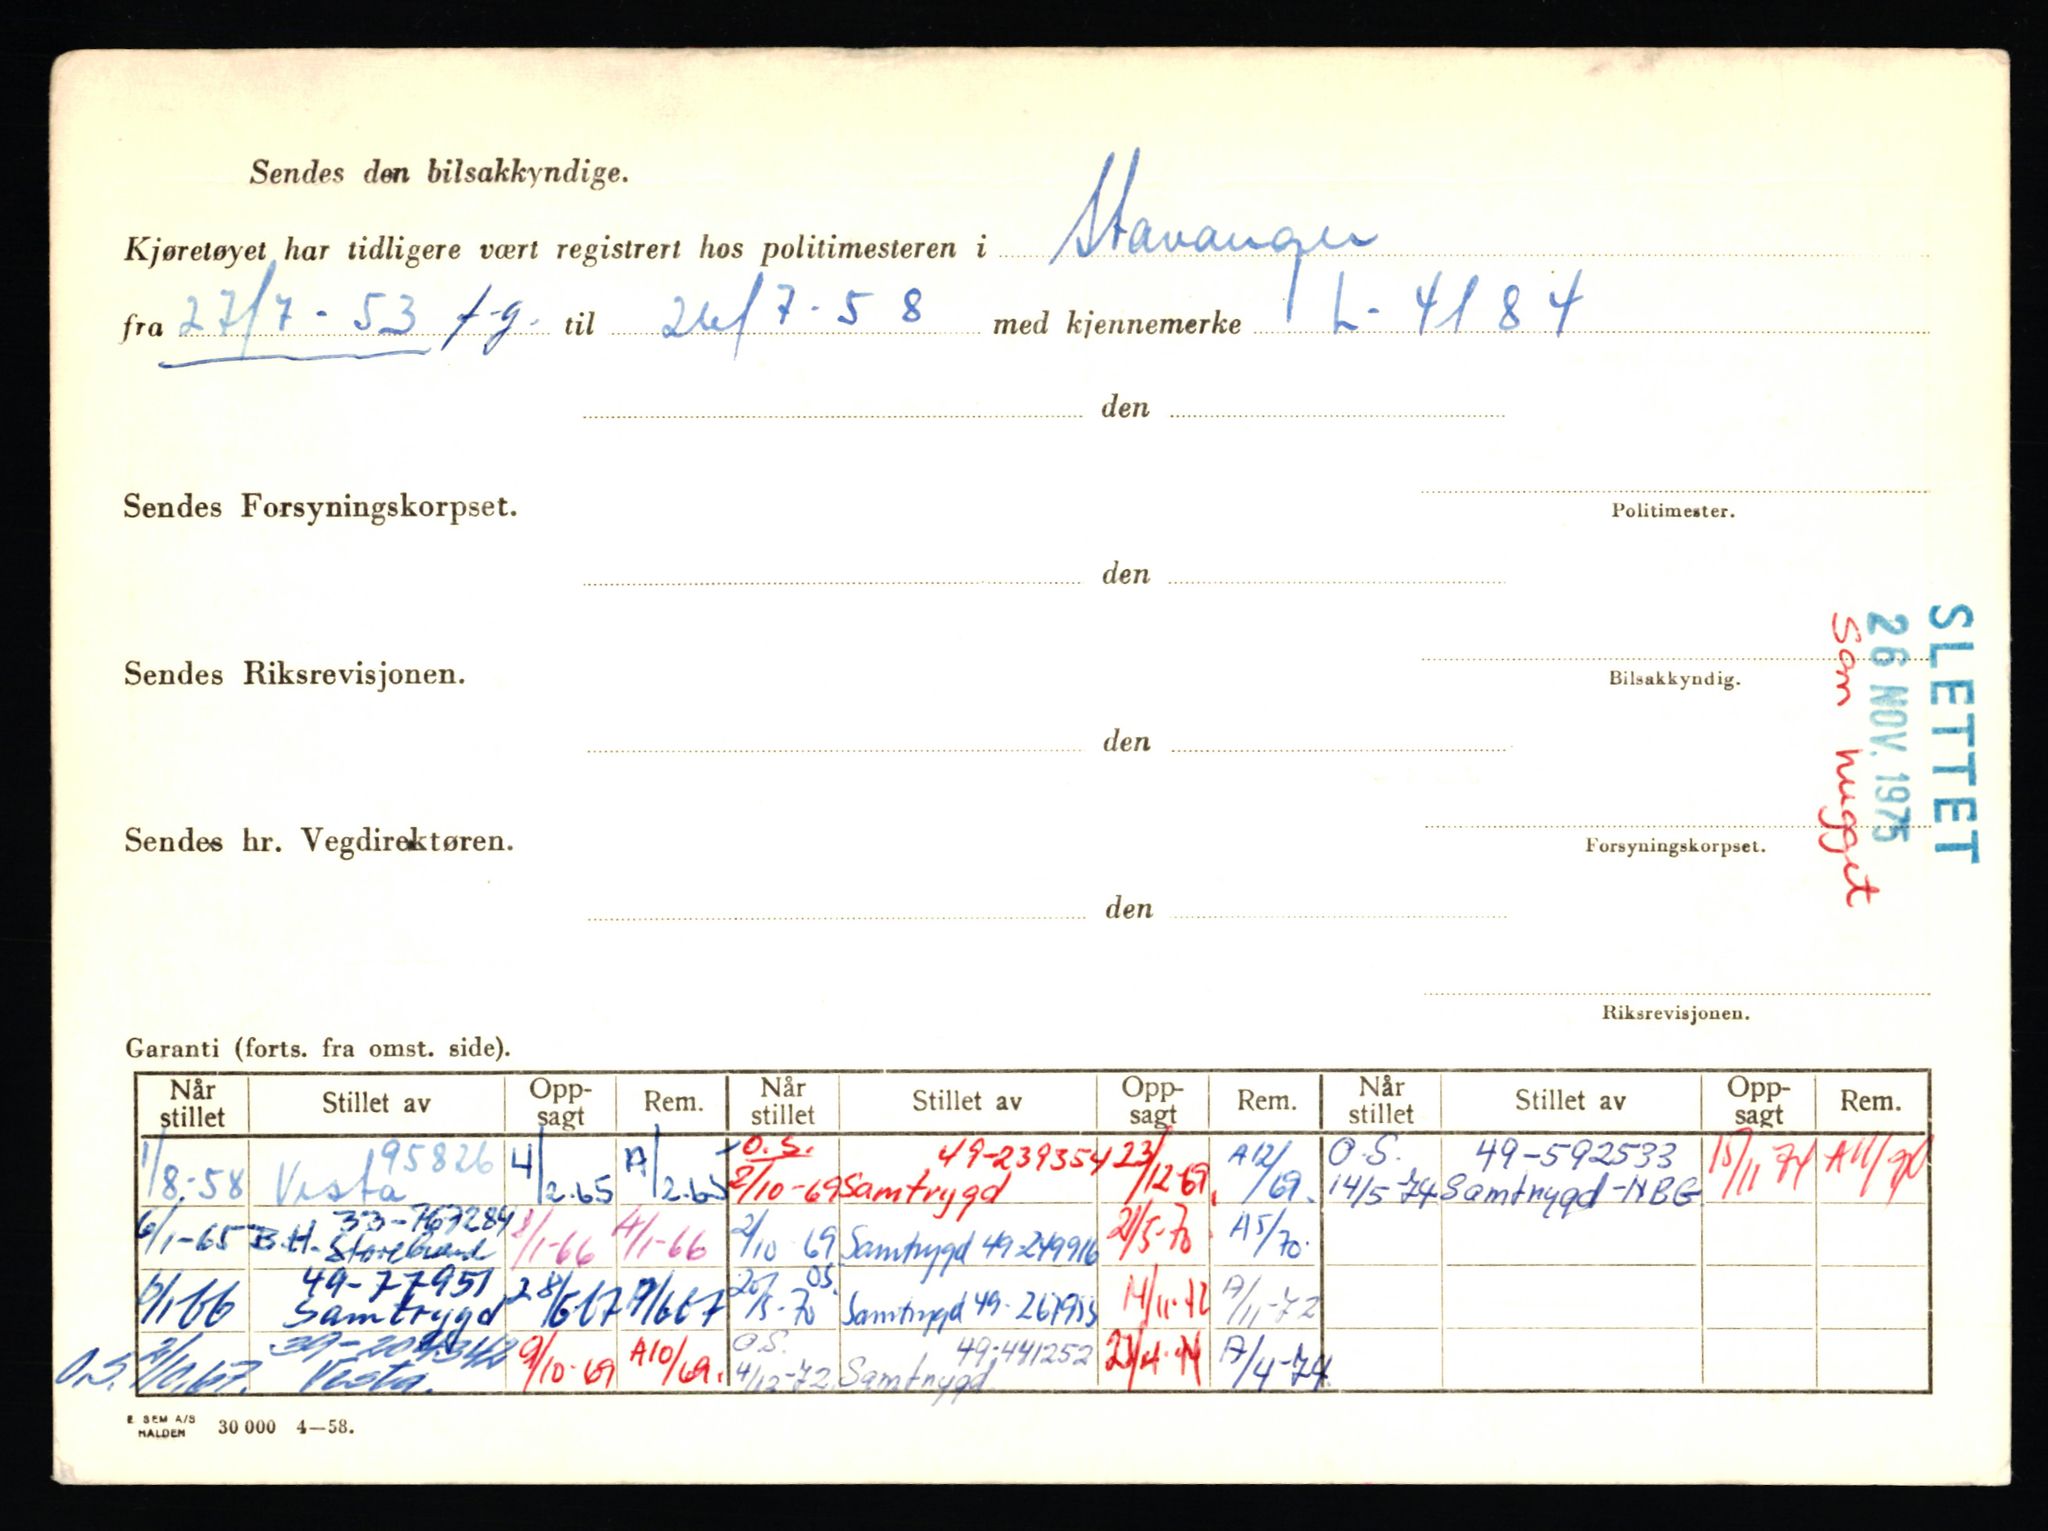 Sendes den bilsakkyndige.
Kjøretøyet har tidligere vært registrert hos politimesteren i Stavanger
fra 27/7-53 f-g. til 24/7-58 med kjennemerke L-4184
den
Politimester.
Sendes Forsyningskorpset.
den
Bilsakkyndig.
Sendes Riksrevisjonen.
den
Forsyningskorpset.
Sendes hr. Vegdirektøren.
den
Riksrevisjonen.
SLETTET
26 NOV. 1975
Som hugget
Garanti (forts. fra omst. side).
Når stillet Stillet av Opp-sagt Rem. Når stillet Stillet av Opp-sagt Rem. Når stillet Stillet av Opp-sagt Rem.
1/8-58 Vesta 95826 4/2.65 A/2.65 O.S. 2/10-69 49-239354 Samtrygd 23/12-69. A12/69. O.S. 14/5-74 49-592533 Samtrygd-NBG 15/11 74 A11/
6/1-65 B.H. 33-767284 Storebrand 1/1-66 A/1-66 2/10 69 Samtrygd 49-249916 21/5-70 A5/70.
1/1-66 49-77951 Samtrygd 28/6-67 A/667 20/5-70 OS. Samtrygd 49- 14/11-72 A/11-72
O.S. 2/10.67. Vesta. 9/10-69 A10/69. O.S. 4/12-72 49-441252 Samtrygd 23/4-74 A/4-74
E SEM A/S HALDEN 30 000 4—58.